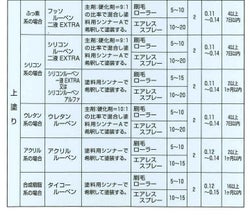 上塗り
ふっ素
系の場合
フッソ
ルーベン
二液 EXTRA
主剤:硬化剤=9:1
の比率で混合し塗
料用シンナーAで
希釈して塗装する。
刷毛
ローラー
5~10
エアレス
スプレー
10~20
2
0.11
~0.14
4以上
7日以内
シリコン
系の場合
シリコン
ルーベン
二液 EXTRA
主剤:硬化剤=9:1
の比率で混合し塗
料用シンナーAで
希釈して塗装する。
刷毛
ローラー
5~10
エアレス
スプレー
10~20
2
0.11
~0.14
シリコンルーベン
一液 EXTRA
又は
シリコンルーベン
アルファ
塗料用シンナーAで
希釈して塗装する。
刷毛
ローラー
エアレス
スプレー
2
ウレタン
系の場合
ウレタン
ルーベン
主剤:硬化剤=10:1
の比率で混合し塗
料用シンナーAで
希釈して塗装する。
刷毛
ローラー
エアレス
スプレー
2
アクリル
系の場合
アクリル
ルーベン
塗料用シンナーで
希釈して塗装する。
刷毛
ローラー
エアレス
スプレー
2
0.12
~0.14
合成樹脂
系の場合
タイコー
ルーベン
塗料用シンナーで
希釈して塗装する。
刷毛
ローラー
エアレス
スプレー
2
0.12